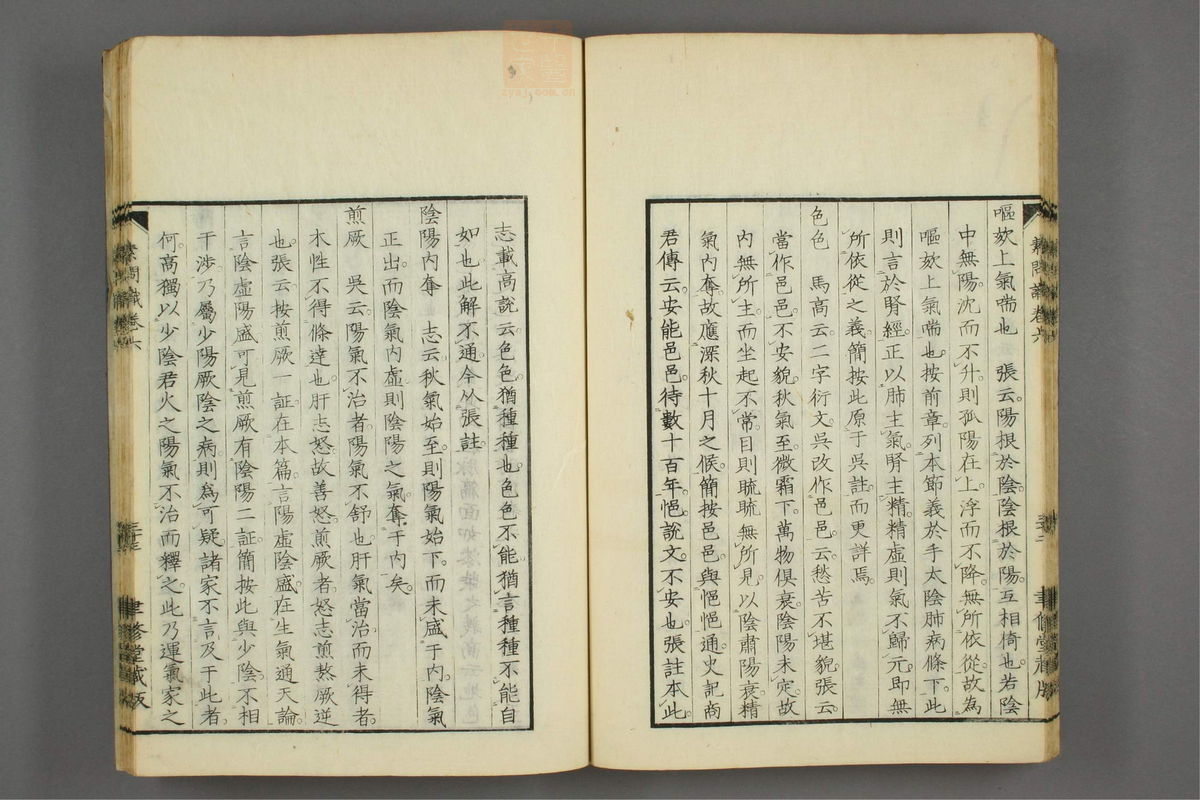 嘔欬上氣喘也　張云陽根於陰陰根於陽。互相倚也。若陰
中無陽。沈而不升。則孤陽在上。浮而不降。無所依從。故為
嘔欬上氣喘也。按前章。列本節義於手太陰肺病條下。此
則言於腎經。正以肺主氣。腎主精。精虛則氣不歸元。即無
所依從之義。簡按此原于吳註。而更詳焉。
色色　馬高云。二字衍文。吳改作邑邑。云愁苦不堪貌。張云
當作邑邑。不安貌。秋氣至。微霜下。萬物俱衰。陰陽未定。故
內無所主。而坐起不常。目則䀮䀮無所見。以陰肅陽衰。精
氣內奪。故應深秋十月之候。簡按邑邑與悒悒通。史記商
君傳云。安能邑邑待數十百年。悒。說文。不安也。張註本此。
素問識卷六
三十二
聿修堂藏版
志載高說云。色色。猶種種也。色色不能。猶言種種不能自
如也。此解不通。今从張註。
陰陽內奪　志云。秋氣始至。則陽氣始下。而未盛于內。陰氣
正出。而陰氣內虛。則陰陽之氣。奪于內矣。
煎厥　吳云。陽氣不治者。陽氣不舒也。肝氣當治而未得者。
木性不得條達也。肝志怒。故善怒。煎厥者。怒志煎熬厥逆
也。張云。按煎厥一証。在本篇。言陽虛陰盛。在生氣通天論。
言陰虛陽盛。可見煎厥有陰陽二証。簡按此與少陰不相
干涉。乃屬少陽厥陰之病。則為可疑。諸家不言及于此者
何。高獨以少陰君火之陽氣不治而釋之。此乃運氣家之
素問識卷六
三十三
聿修堂藏版